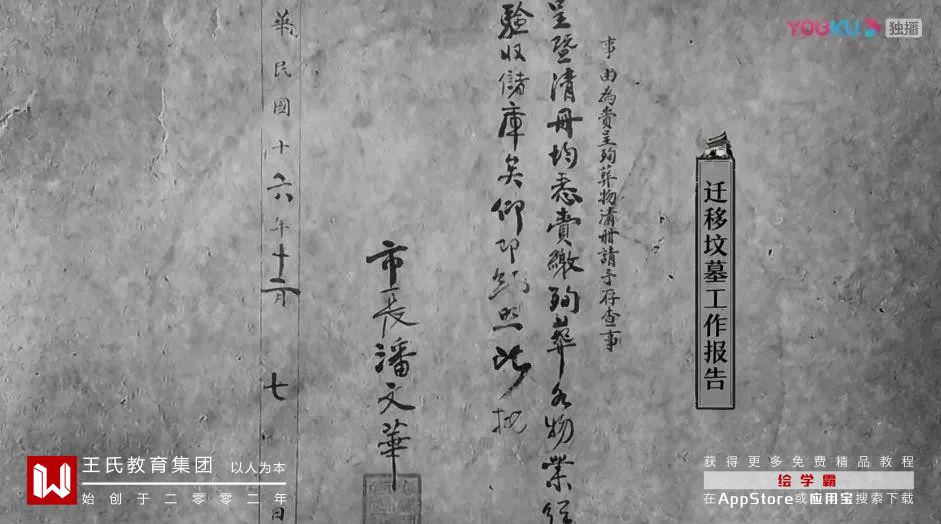 YOUKU 独播
迁移坟墓工作报告
事由為賫呈殉葬物清册請予存查事
呈暨清册均悉賫繳殉葬各物業經
驗收儲庫矣仰即知照此批
市長潘文華
華民國十六年十二月
七
日
王氏教育集团 以人为本
始创于二零零二年
获得更多免费精品教程
绘学霸
在AppStore或应用宝搜索下载